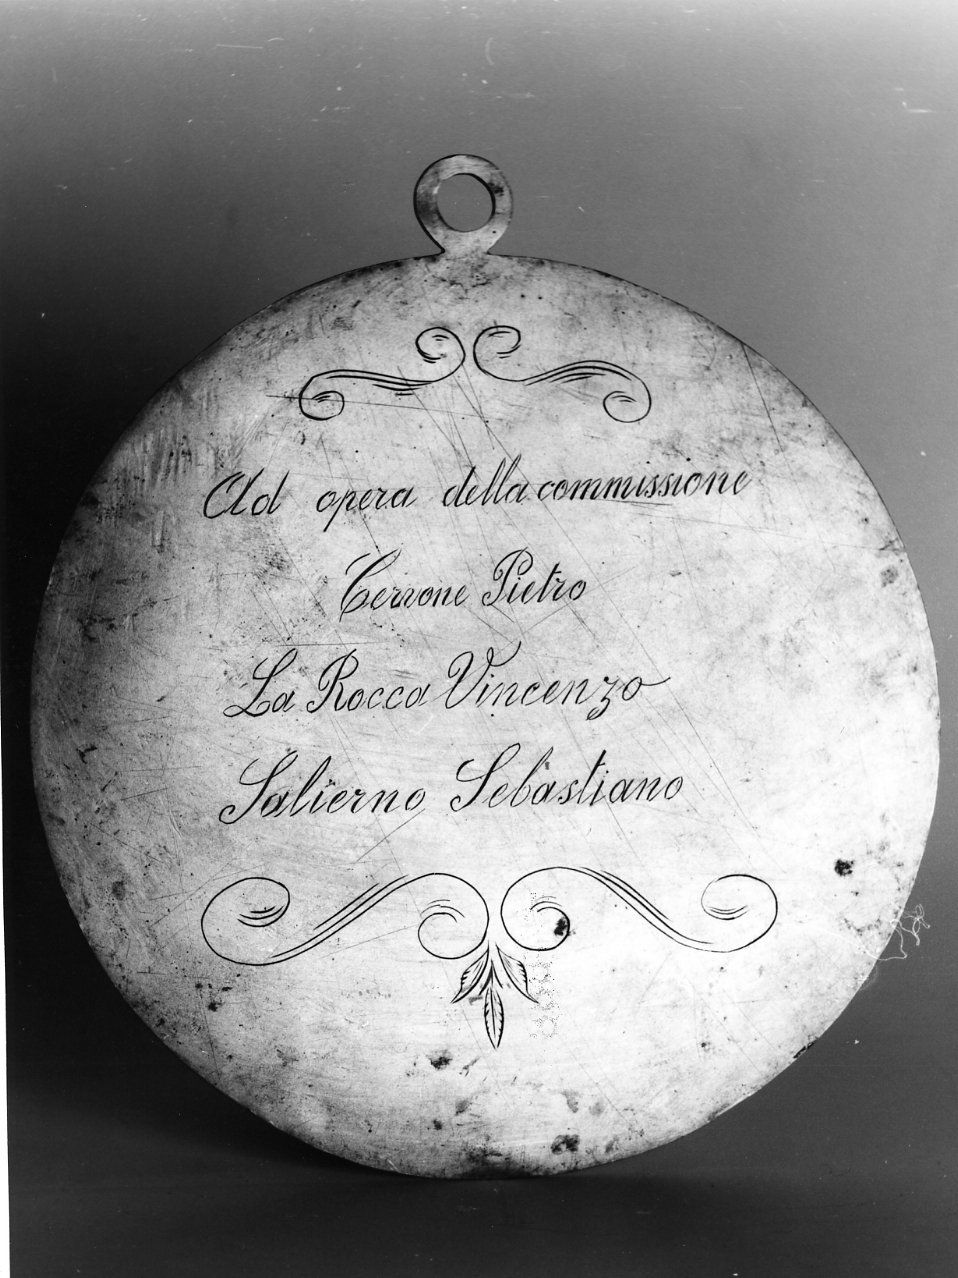 Ad opera della commissione
Cerrone Pietro
La Rocca Vincenzo
Salierno Sebastiano